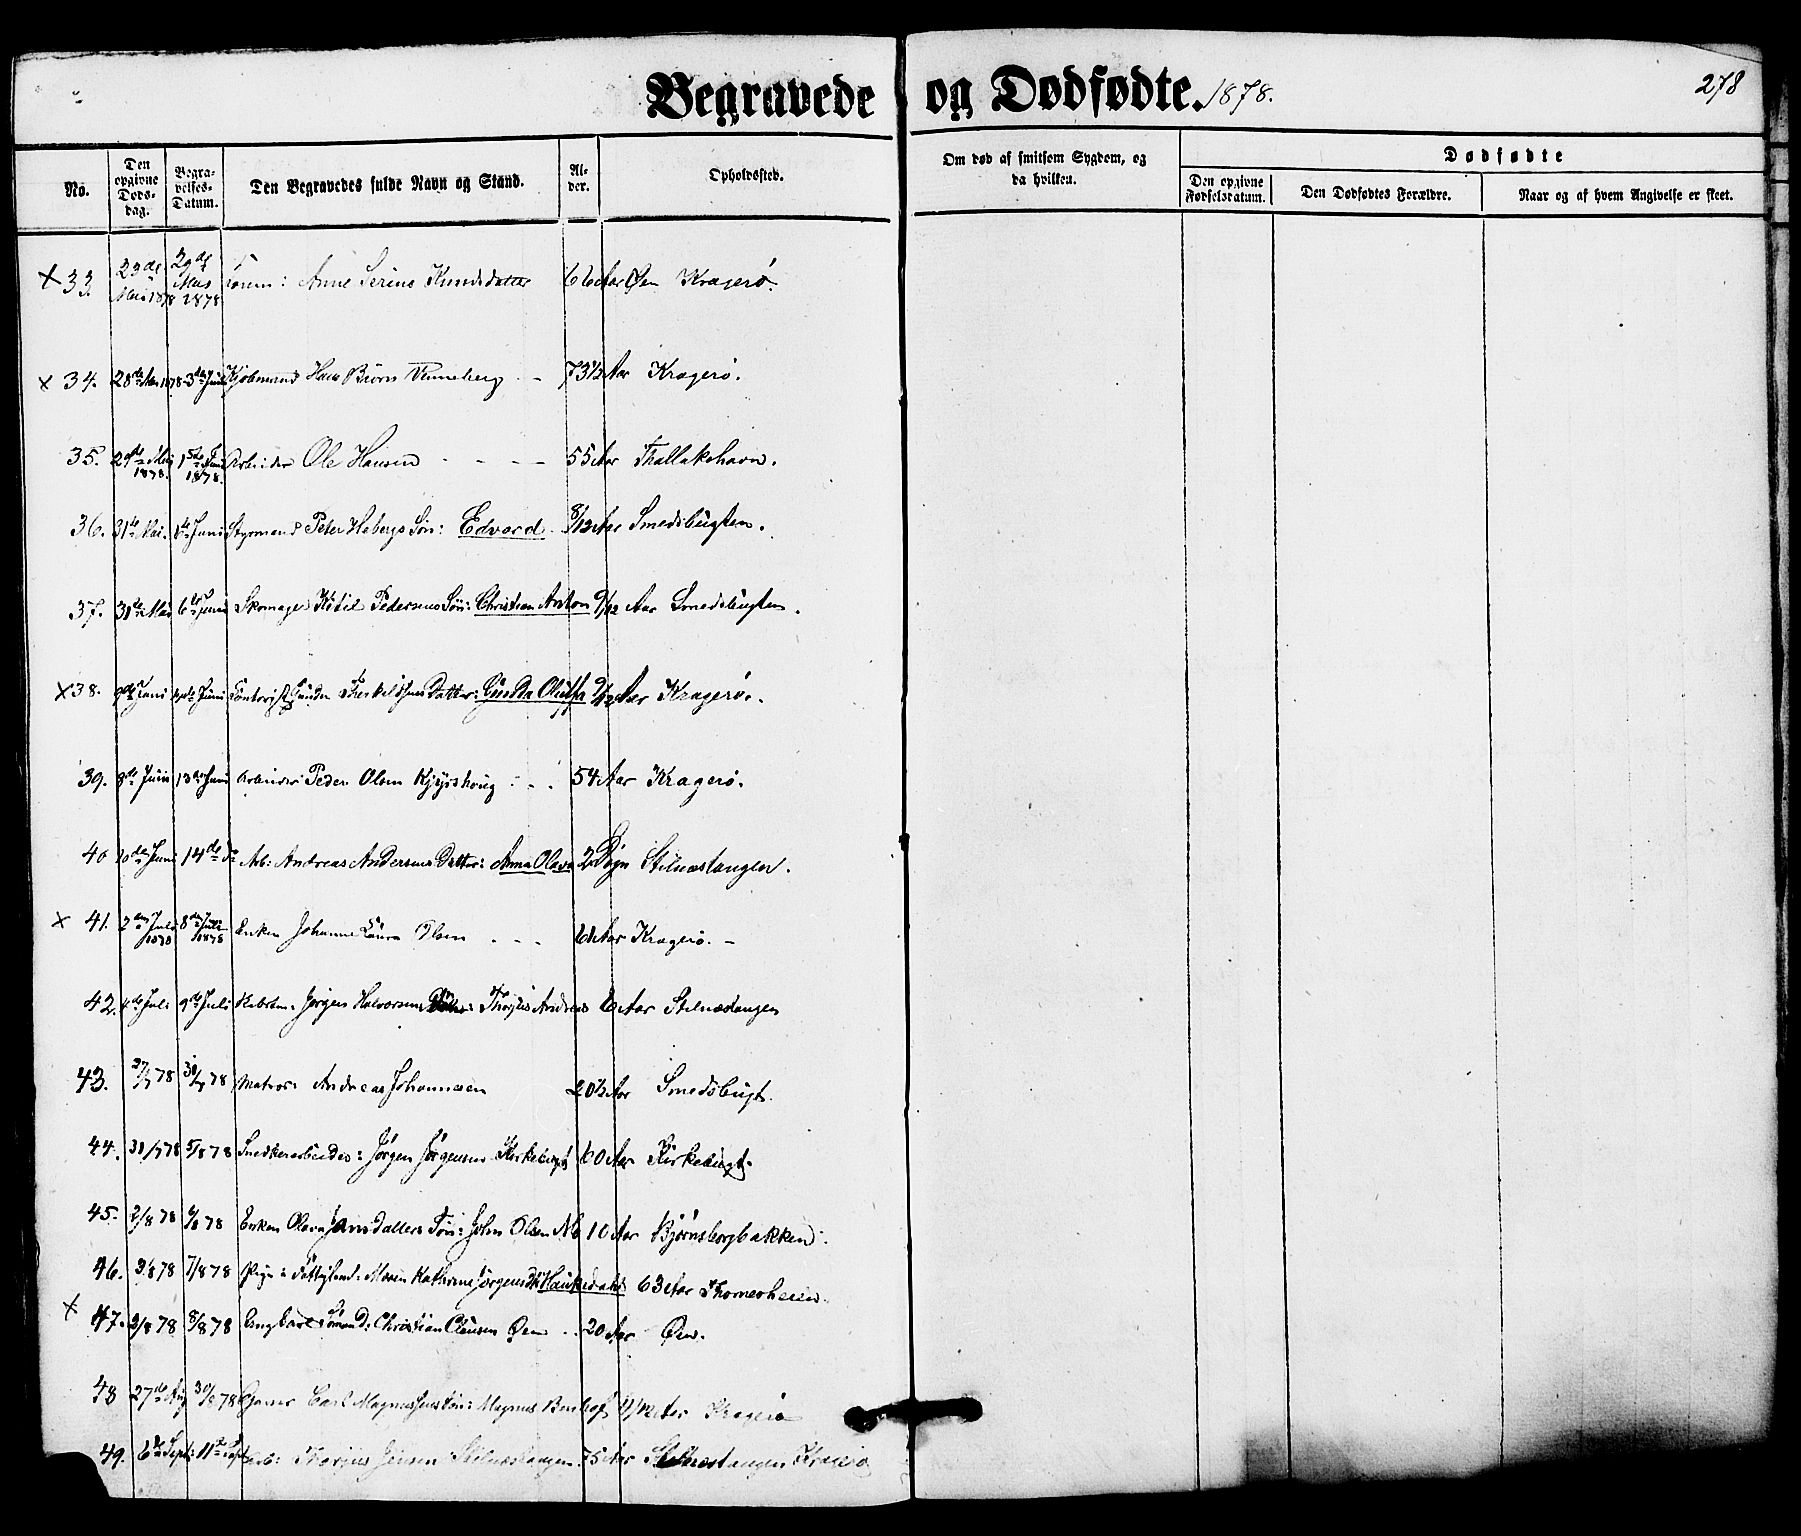 Begravede og Dødfødte. 1878.
278
No.
Den opgivne Døds-dag.
Begra-velses-Datum.
Den Begravedes fulde Navn og Stand.
Al-der.
Opholdssted.
Om død af smitsom Sygdom, og da hvilken.
Dødfødte
Den opgivne Fødselsdatum.
Den Dødfødtes Forældre.
Naar og af hvem Angivelse er skeet.
x 33. 23de Mai 1878 29de Mai 1878 Anne Serine Knudsdatter 66 Aar Øen Kragerø.
x 34. 28de Mai 1878 3de Juni Kjøbmand Hans Biørn Wenneberg - 73 1/2 Aar Kragerø.
35. 29de Mai 1878. 1ste Juni 1878. Arbeider Ole Hansen - - - - 55 Aar Thallakshavn.
36. 31te Mai. 6te Juni Styrmand Peter Hebergs Søn: Edvard 8/12 Aar Smedsbugten.
37. 31te Mai 6te Juni Skomager Ketil Pedersens Søn: Christian Anton 9/12 Aar Smedsbugten.
x 38. Juni Juni Gunder Terkelsens Datter: Gunda Olufa 9/12 Aar Kragerø.
39. 8de Juni 13de Juni Arbeider Peder Olsen - - 54 Aar Kragerø.
40 10de Juni 14de do Arb: Andreas Andersens Datter: Anna Olava 2 Døgn Stilnæstangen.
x 41. 2den Juli 1878 8de Juli 1878 Enken Johanne Laura Olsen - - - 61 Aar Kragerø. -
42. 4de Juli 9de Juli Jørgen Halvorsens Andreas 6 Aar Stilnæstangen
43. 27/7 78 30/7 78 Matros: Andreas Johannesen 20 1/2 Aar Smedsbugt.
44. 31/7 78 5/8 78 Snedkerarbeider: Jørgen Jørgensen Kirkebugt 60 Aar Kirkebugt.
45. 2/8 78 6/8 78 Enken Olava Jansdatters Søn: John Olsen 10 Aar Bjørnsborgbakken.
46. 3/8 78 7/8 78 Pige: Fattiglem: Maren Kathrine Jørgensdt 63 Aar Thomesheien.
x 47. 2/8 78 8/8 78 Ungkarl Sømand: Christian Clausen Øen - 20 Aar Øen.
48 27de Aug 30/8 78 Carl Magnussens Søn: Magnus Aar Kragerø
49. 6te Sept: 11te Sept Arb: Jensen Stilnæstangen. 75 Aar Stilnæstangen Kragerø